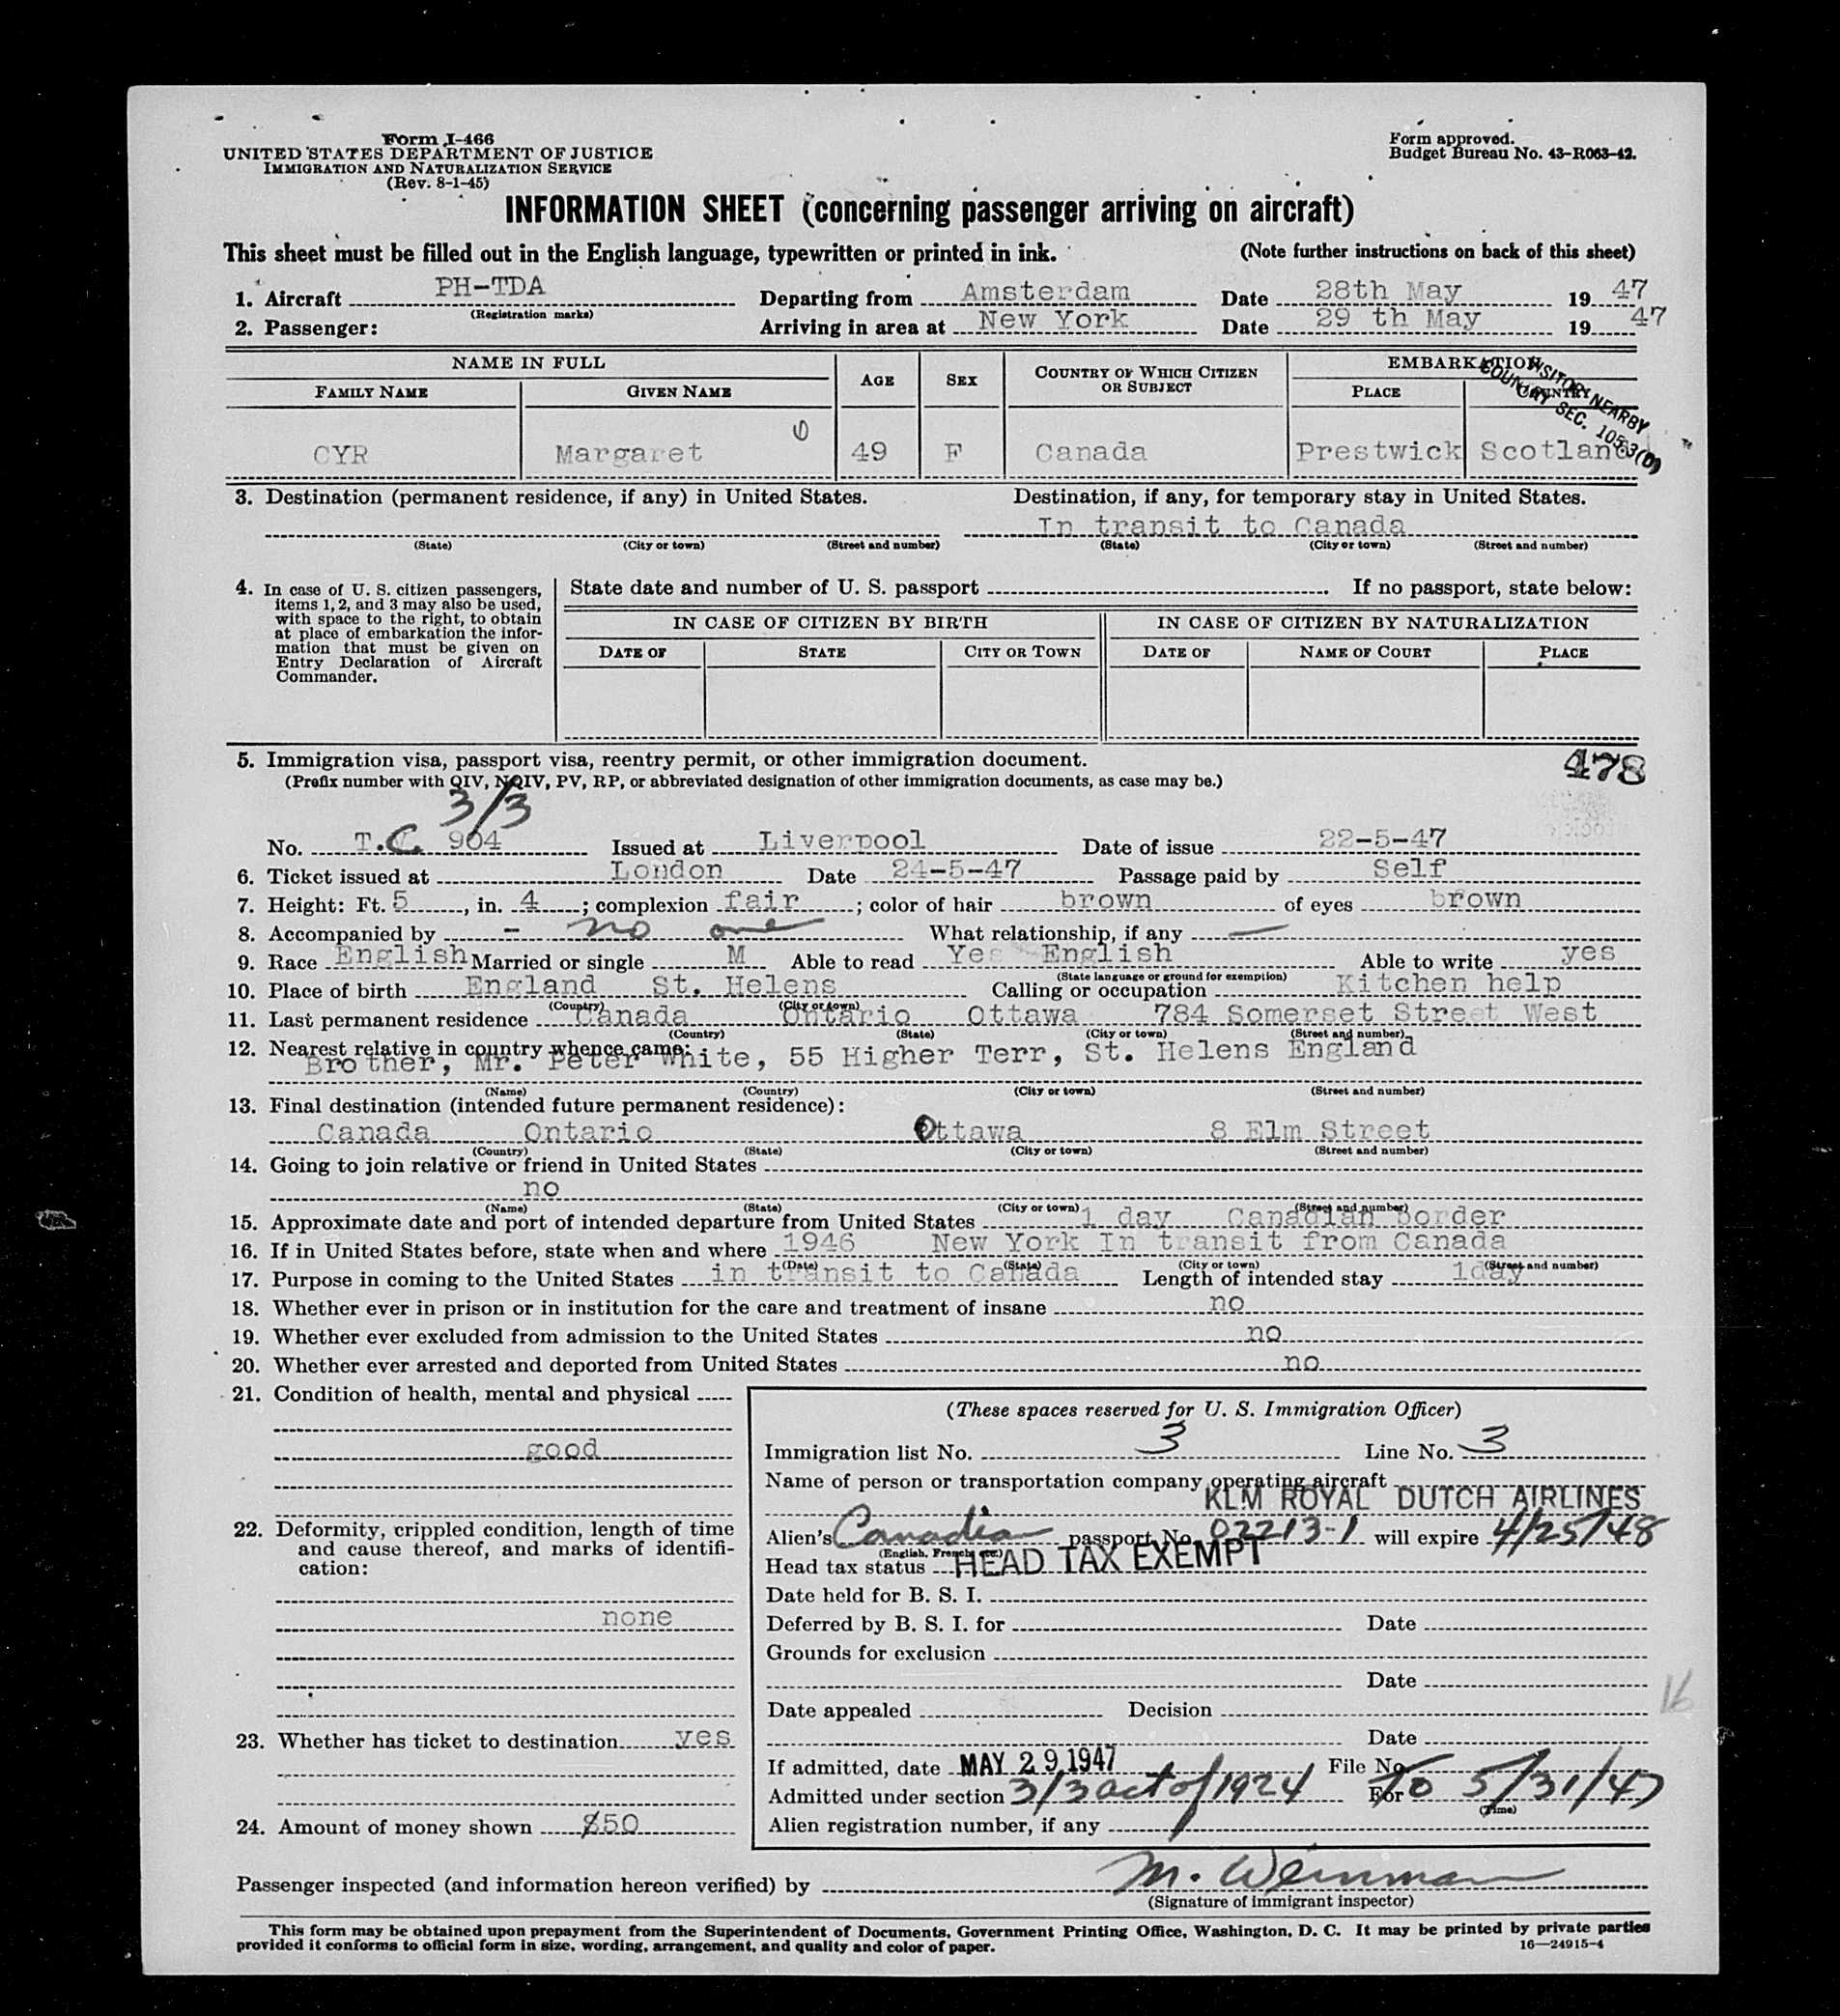 Form I-466
UNITED STATES DEPARTMENT OF JUSTICE
IMMIGRATION AND NATURALIZATION SERVICE
(Rev. 8-1-45)
Form approved.
Budget Bureau No. 43-R063-42.
INFORMATION SHEET (concerning passenger arriving on aircraft)
This sheet must be filled out in the English language, typewritten or printed in ink. (Note further instructions on back of this sheet)
1. Aircraft PH-TDA Departing from Amsterdam Date 28th May 19 47
(Registration marks)
2. Passenger: Arriving in area at New York Date 29 th May 19 47
NAME IN FULL AGE SEX COUNTRY OF WHICH CITIZEN OR SUBJECT EMBARKATION
FAMILY NAME GIVEN NAME PLACE COUNTRY
VISITOR NEARBY
COUNTRY SEC. 105.3(D)
CYR Margaret 49 F Canada Prestwick Scotland
3. Destination (permanent residence, if any) in United States. Destination, if any, for temporary stay in United States.
In transit to Canada
(State) (City or town) (Street and number) (State) (City or town) (Street and number)
4. In case of U. S. citizen passengers, items 1, 2, and 3 may also be used, with space to the right, to obtain at place of embarkation the information that must be given on Entry Declaration of Aircraft Commander.
State date and number of U. S. passport . If no passport, state below:
IN CASE OF CITIZEN BY BIRTH IN CASE OF CITIZEN BY NATURALIZATION
DATE OF STATE CITY OR TOWN DATE OF NAME OF COURT PLACE
5. Immigration visa, passport visa, reentry permit, or other immigration document. 478
(Prefix number with QIV, NQIV, PV, RP, or abbreviated designation of other immigration documents, as case may be.)
3/3
No. T.C. 904 Issued at Liverpool Date of issue 22-5-47
6. Ticket issued at London Date 24-5-47 Passage paid by Self
7. Height: Ft. 5, in. 4; complexion fair; color of hair brown of eyes brown
8. Accompanied by - no one What relationship, if any —
9. Race English Married or single M Able to read Yes English Able to write yes
(State language or ground for exemption)
10. Place of birth England St. Helens Calling or occupation Kitchen help
(Country) (City or town)
11. Last permanent residence Canada Ontario Ottawa 784 Somerset Street West
(Country) (State) (City or town) (Street and number)
12. Nearest relative in country whence came:
Brother, Mr. Peter White, 55 Higher Terr, St. Helens England
(Name) (Country) (City or town) (Street and number)
13. Final destination (intended future permanent residence):
Canada Ontario Ottawa 8 Elm Street
(Country) (State) (City or town) (Street and number)
14. Going to join relative or friend in United States
no
(Name) (State) (City or town) (Street and number)
15. Approximate date and port of intended departure from United States 1 day Canadian border
16. If in United States before, state when and where 1946 New York In transit from Canada
(Date) (State) (City or town) (Street and number)
17. Purpose in coming to the United States in transit to Canada Length of intended stay 1day
18. Whether ever in prison or in institution for the care and treatment of insane no
19. Whether ever excluded from admission to the United States no
20. Whether ever arrested and deported from United States no
21. Condition of health, mental and physical
good
22. Deformity, crippled condition, length of time and cause thereof, and marks of identification:
none
23. Whether has ticket to destination yes
24. Amount of money shown $50
(These spaces reserved for U. S. Immigration Officer)
Immigration list No. 3 Line No. 3
Name of person or transportation company operating aircraft
KLM ROYAL DUTCH AIRLINES
Alien's Canadian passport No. 02213-1 will expire 4/25/48
(English, French, etc.)
Head tax status HEAD TAX EXEMPT
Date held for B. S. I.
Deferred by B. S. I. for Date
Grounds for exclusion
Date
Date appealed Decision
Date
If admitted, date MAY 29 1947 File No.
Admitted under section 3/3 act of 1924 For To 5/31/47
(Time)
Alien registration number, if any
16
Passenger inspected (and information hereon verified) by M. Weinman
(Signature of immigrant inspector)
This form may be obtained upon prepayment from the Superintendent of Documents, Government Printing Office, Washington, D. C. It may be printed by private parties
provided it conforms to official form in size, wording, arrangement, and quality and color of paper. 16—24915-4